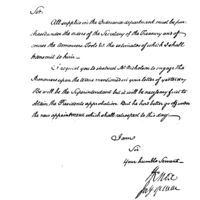 Sir.
All supplies in the Ordnance department must be pur-
chased under the orders of the Secretary of the Treasury and of
course the Armourers Tools the estimates of which I shall
transmit to him.
I request you to desire Mr Nicholson to engage the
Armourers upon the terms mentioned in your letter of yesterday
He will be the Superintendant but it will be necessary first to
obtain the Presidents approbation. But he has better go on
the new appointments which shall be subject to this day.
I am
Sir
Your humble Servant
H Knox